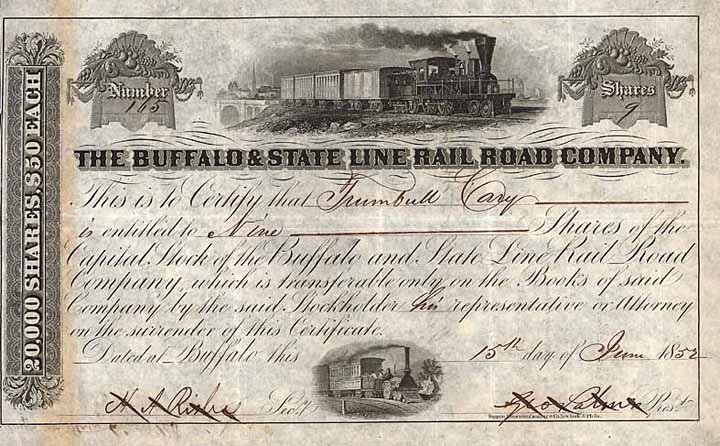 20,000 SHARES, $50 EACH
Number
165
Shares
9
THE BUFFALO & STATE LINE RAIL ROAD COMPANY.
This is to Certify that Trumbull Cary
is entitled to Nine Shares of the
Capital Stock of the Buffalo and State Line Rail Road
Company, which is transferable only on the Books of said
Company by the said Stockholder his representative or Attorney
on the surrender of this Certificate.
Dated at Buffalo this 15th day of June 1852
Sec.y
Pres.t